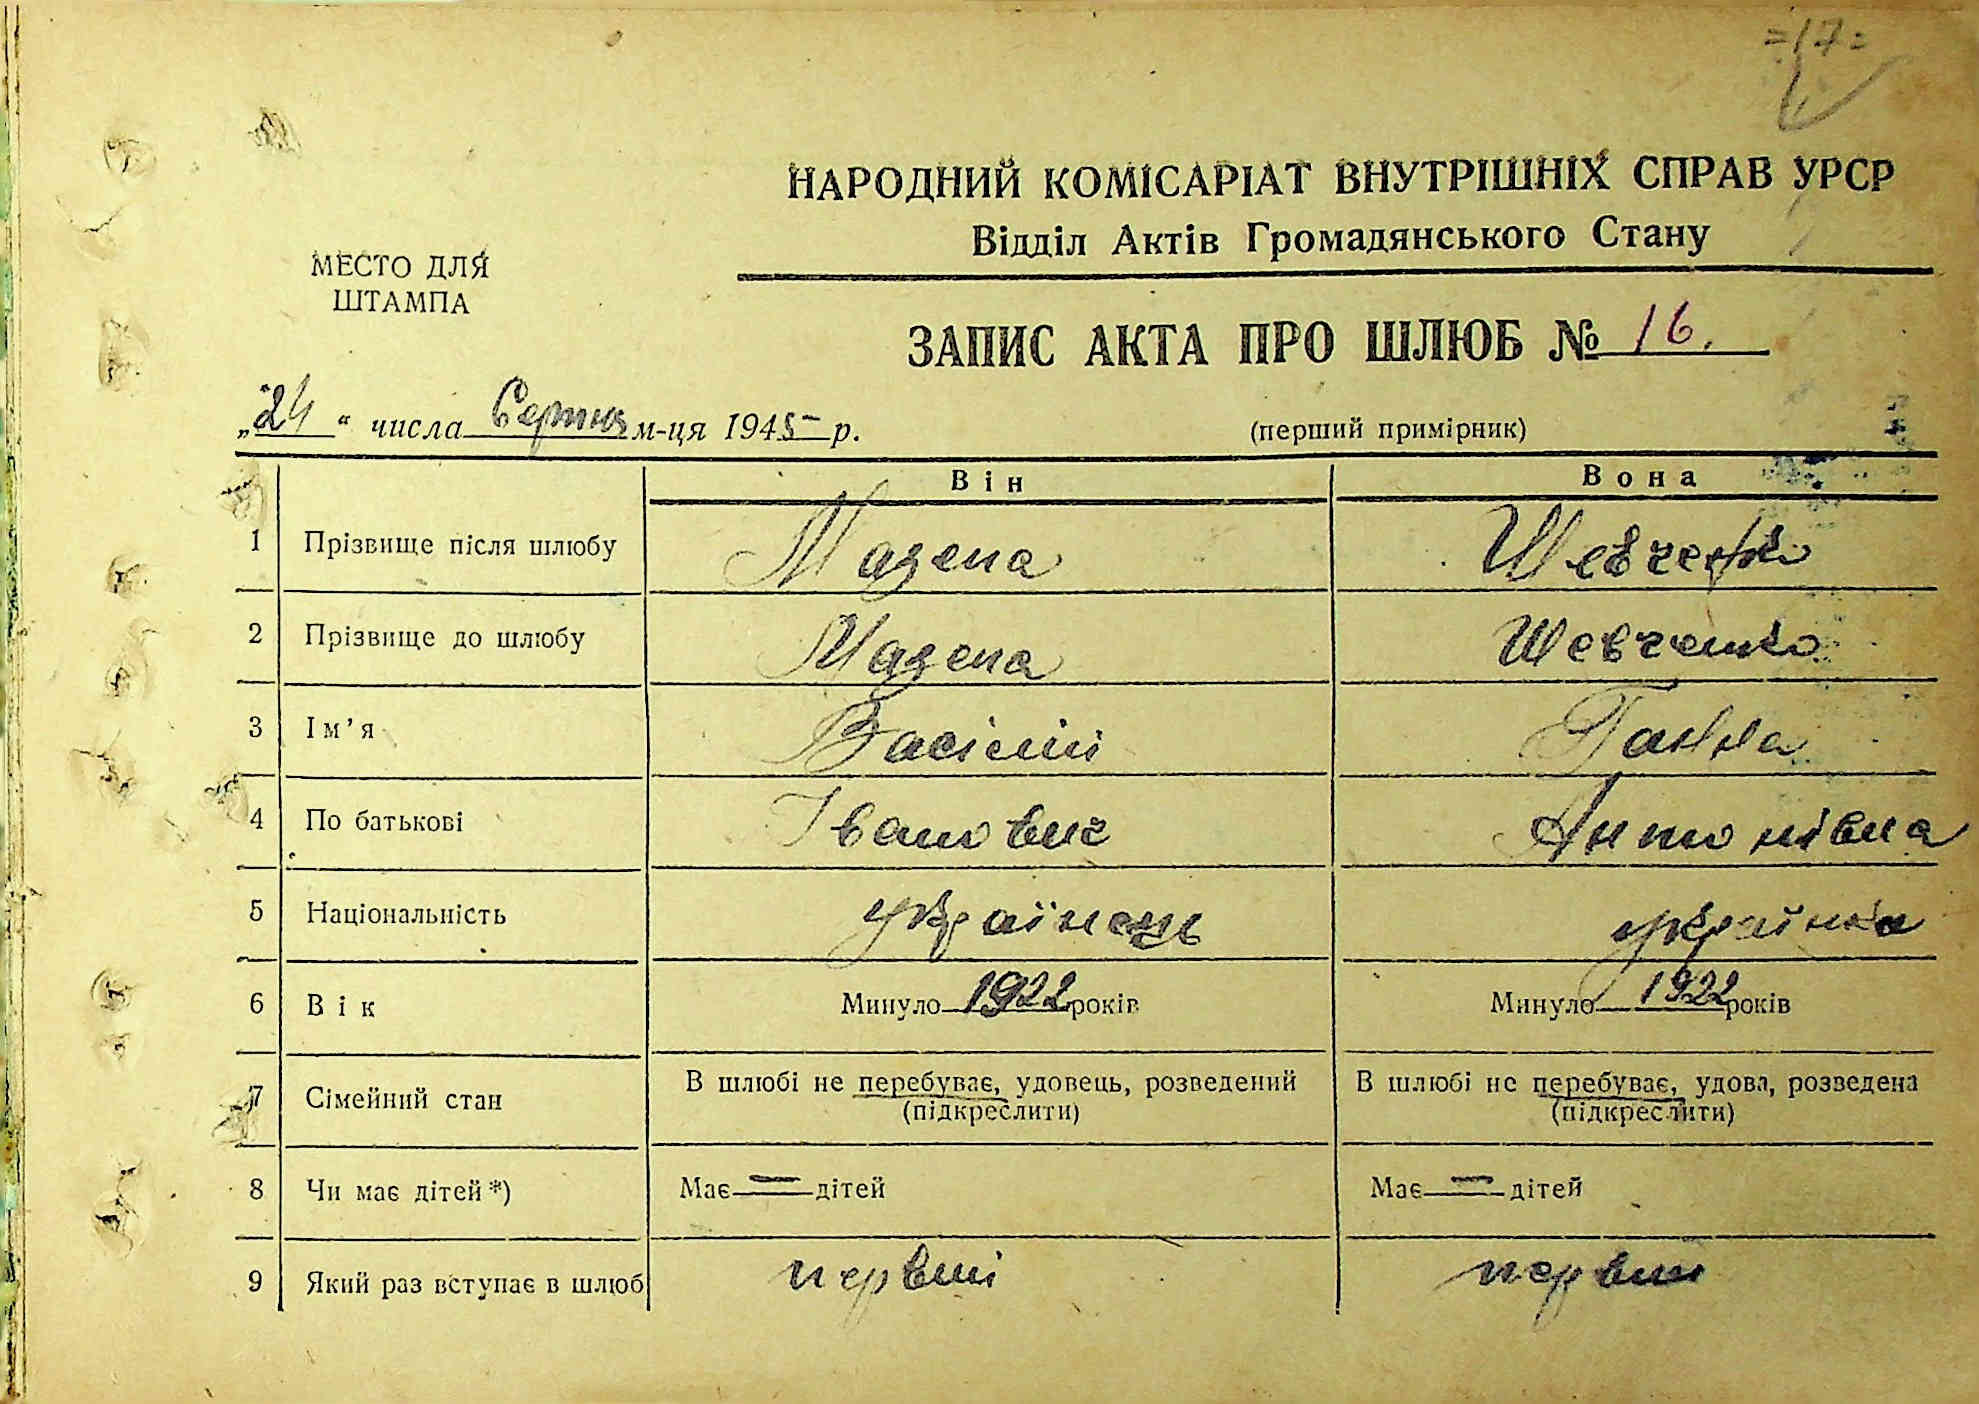 =17=
НАРОДНИЙ КОМІСАРІАТ ВНУТРІШНІХ СПРАВ УРСР
Відділ Актів Громадянського Стану
МЕСТО ДЛЯ
ШТАМПА
ЗАПИС АКТА ПРО ШЛЮБ № 16.
„24“ числа Серпня м-ця 1945 р.
(перший примірник)
Він Вона
1 Прізвище після шлюбу Мазепа Шевченко
2 Прізвище до шлюбу Мазепа Шевченко
3 Ім'я Васілій Ганна
4 По батькові Іванович Антонівна
5 Національність українець українка
6 Вік Минуло 1922 років Минуло 1922 років
7 Сімейний стан В шлюбі не перебуває, удовець, розведений В шлюбі не перебуває, удова, розведена
(підкреслити) (підкреслити)
8 Чи має дітей*) Має — дітей Має — дітей
9 Який раз вступає в шлюб первий первий